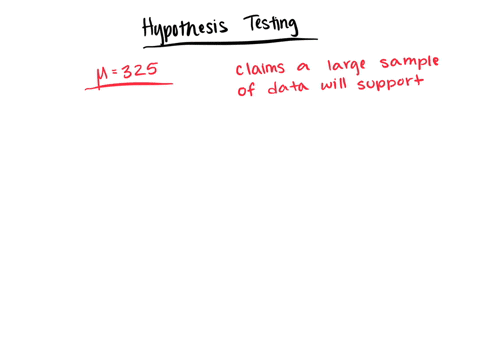 Hypothesis Testing
μ = 325
claims a large sample
of data will support